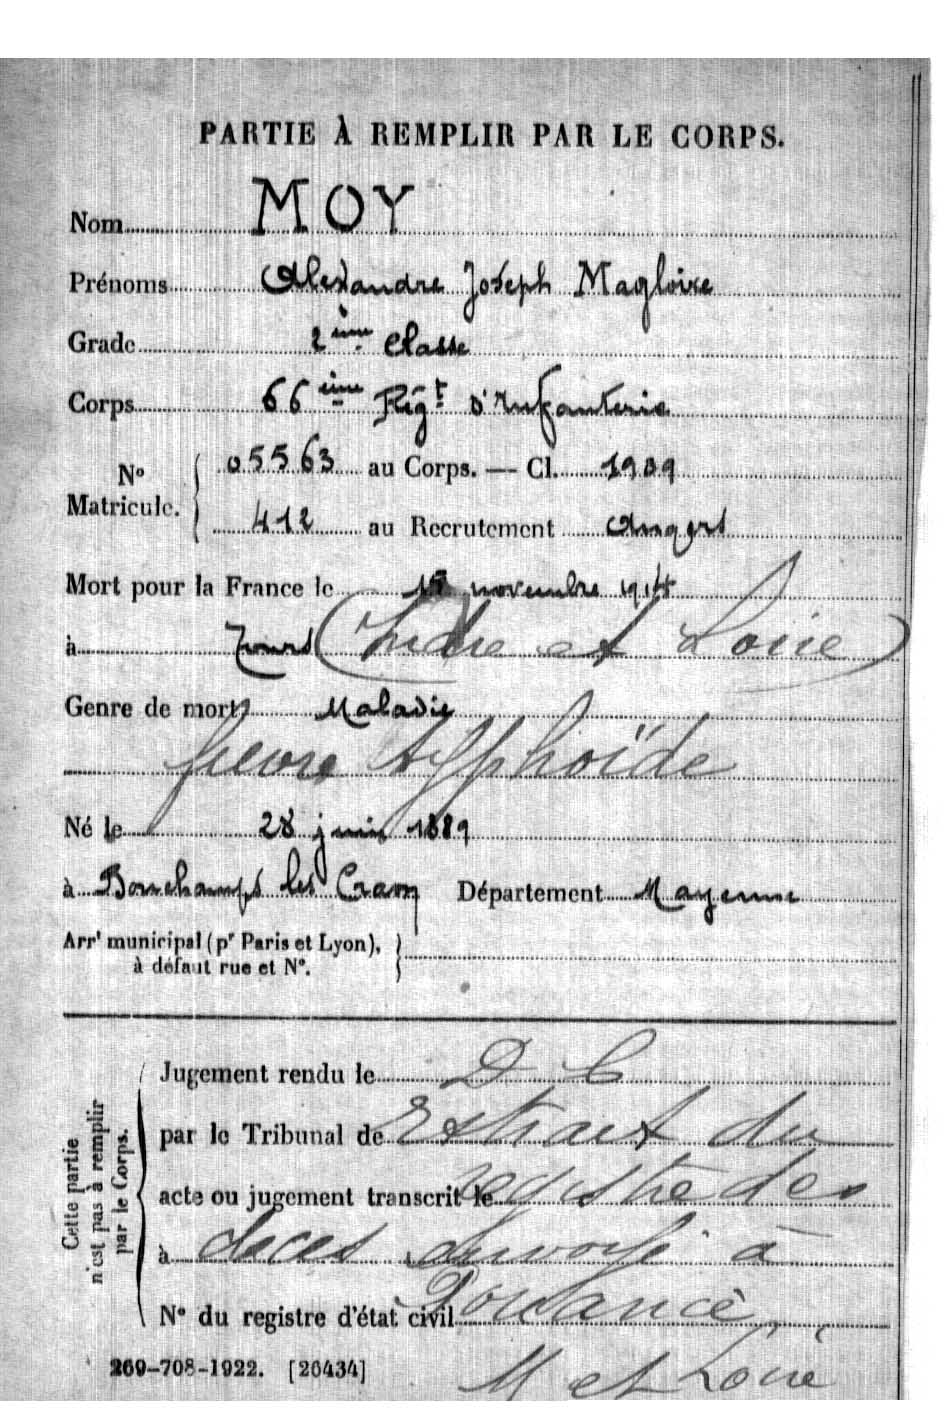 PARTIE À REMPLIR PAR LE CORPS.
Nom MOY
Prénoms Alexandre Joseph Magloire
Grade 2ème Classe
Corps 66ème Régt d'Infanterie
No Matricule. 05563 au Corps. — Cl. 1909
412 au Recrutement Angers
Mort pour la France le novembre 1914
à Tours (Indre et Loire)
Genre de mort Maladie
fievre typhoïde
Né le 28 juin 1889
à Bouchamps les Craon Département Mayenne
Arrt municipal (pr Paris et Lyon),
à défaut rue et No.
Cette partie n'est pas à remplir par le Corps.
Jugement rendu le D C
par le Tribunal de Extrait du
acte ou jugement transcrit le registre des
à décès envoyé à
No du registre d'état civil Pouancé
M et Loire
269-708-1922. [26434]